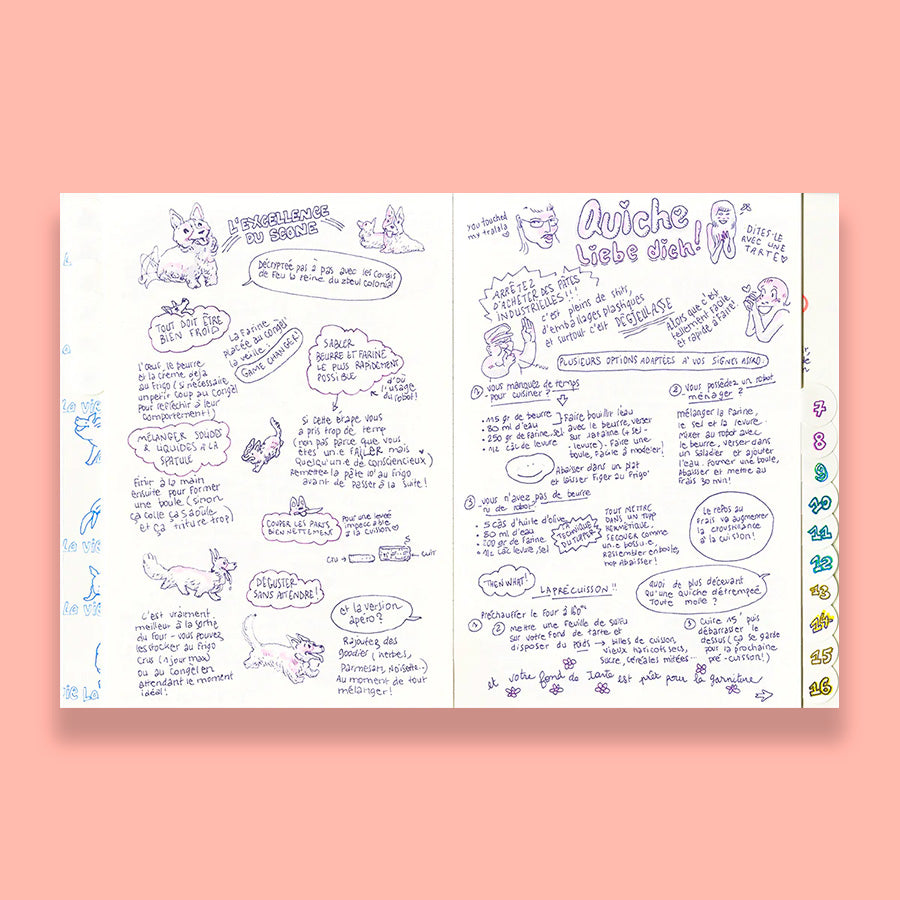 L'EXCELLENCE
DU SCONE
Décryptée pas à pas avec les corgis
de feu la reine du zbeul colonial
TOUT DOIT ÊTRE
BIEN FROID
l'œuf, le beurre
et la crème déjà
au frigo (si nécessaire,
un petit coup au congel
pour réfléchir à leur
comportement!)
La farine
placée au congel'
la veille:
GAME CHANGER!
SABLER
BEURRE ET FARINE
LE PLUS RAPIDEMENT
POSSIBLE
d'où
l'usage
du robot!
si cette étape vous
a pris trop de temps
(non pas parce que vous
êtes un·e FAILER mais
quelqu'un·e de consciencieux)
Remettre la pâte 10' au frigo
avant de passer à la suite!
MÉLANGER SOLIDES
& LIQUIDES À LA
SPATULE
Finir à la main
ensuite pour former
une boule (sinon
ça colle ça saoule
et ça triture trop)
COUPER LES PARTS
BIEN NETTEMENT
pour une levée
impeccable
à la cuisson
cru → cuit
DÉGUSTER
SANS ATTENDRE!
c'est vraiment
meilleur à la sortie
du four - vous pouvez
les stocker au frigo
crus (1 jour max)
ou au congel en
attendant le moment
idéal!
et la version
apéro?
Rajoutez des
goodies (herbes,
parmesan, noisette..)
au moment de tout
mélanger!
you touched
my tralala
Quiche
liebe dich!
DITES-LE
AVEC UNE
TARTE
ARRÊTEZ
D'ACHETER DES PÂTES
INDUSTRIELLES!!
c'est pleins de shits,
d'emballages plastiques
et surtout c'est DÉGUEULASSE
Alors que c'est
tellement facile
et rapide à faire!
PLUSIEURS OPTIONS ADAPTÉES À VOS SIGNES ASTRO:
① vous manquez de temps
pour cuisiner?
• 115 gr de beurre
• 80 ml d'eau
• 250 gr de farine, sel
• 1/2 càc de levure
Faire bouillir l'eau
avec le beurre, verser
sur la farine (+ sel -
levure). Faire une
boule, facile à modeler!
Abaisser dans un plat
et laisser figer au frigo
② vous possédez un robot
ménager?
mélanger la farine,
le sel et la levure.
Mixer au robot avec
le beurre, verser dans
un saladier et ajouter
l'eau. Former une boule,
abaisser et mettre au
frais 30 min!
③ vous n'avez pas de beurre
ni de robot?
• 5 càs d'huile d'olive
• 80 ml d'eau
• 200 gr de farine
• 1/2 càc levure, sel
LA
TECHNIQUE
DU TUPPER
TOUT METTRE
DANS UN TUPP
HERMÉTIQUE,
SECOUER COMME
un·e bossu·e,
Rassembler en boule,
hop Abaisser!
Le repos au
frais va augmenter
la croustillance
à la cuisson!
THEN WHAT!
LA PRÉCUISSON!!
quoi de plus décevant
qu'une quiche détrempée
toute molle?
① Préchauffer le four à 180°
② mettre une feuille de sulfu
sur votre fond de tarte et
disposer du poids → billes de cuisson,
vieux haricots secs,
sucre, céréales mitées...
③ Cuire 15' puis
débarrasser le
dessus (ça se garde
pour la prochaine
pré-cuisson!)
et votre fond de tarte est prête pour la garniture
7
8
9
10
11
12
13
14
15
16